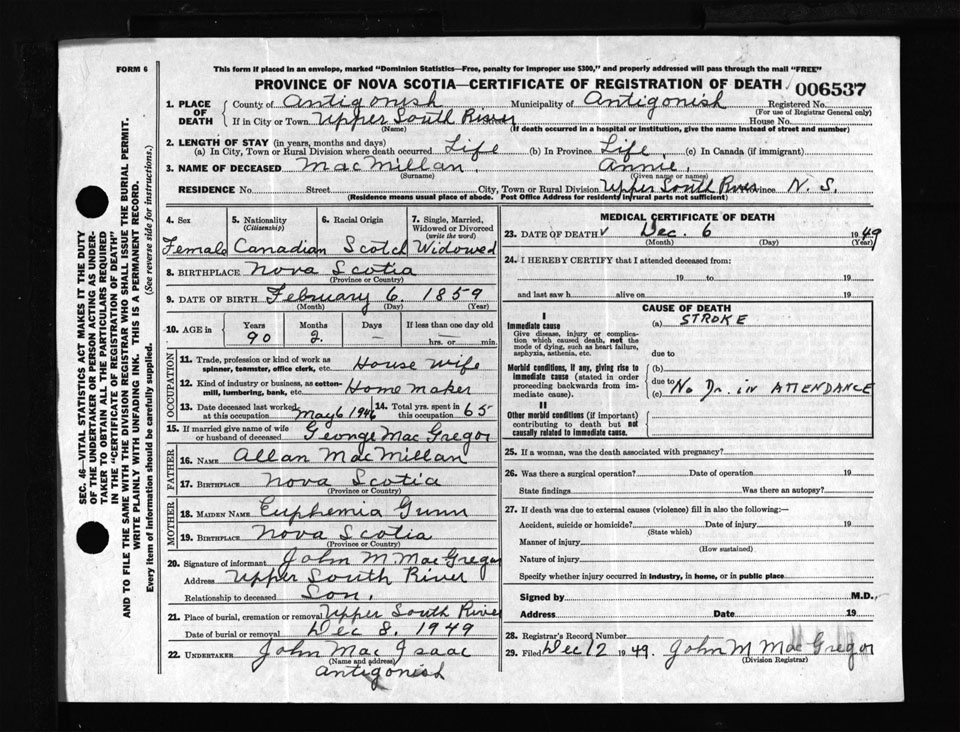 FORM 6
This form if placed in an envelope, marked "Dominion Statistics—Free, penalty for improper use $300," and properly addressed will pass through the mail "FREE"
PROVINCE OF NOVA SCOTIA—CERTIFICATE OF REGISTRATION OF DEATH 006537
SEC. 46—VITAL STATISTICS ACT MAKES IT THE DUTY
OF THE UNDERTAKER OR PERSON ACTING AS UNDER-
TAKER TO OBTAIN ALL THE PARTICULARS REQUIRED
IN THE "CERTIFICATE OF REGISTRATION OF DEATH"
AND TO FILE THE SAME WITH THE DIVISION REGISTRAR WHO SHALL ISSUE THE BURIAL PERMIT.
WRITE PLAINLY WITH UNFADING INK. THIS IS A PERMANENT RECORD.
Every item of information should be carefully supplied. (See reverse side for instructions.)
1. PLACE OF DEATH
County of Antigonish Municipality of Antigonish Registered No.
(For use of Registrar General only)
If in City or Town Upper South River House No.
(Name) (If death occurred in a hospital or institution, give the name instead of street and number)
2. LENGTH OF STAY (in years, months and days)
(a) In City, Town or Rural Division where death occurred Life (b) In Province Life (c) In Canada (if immigrant)
3. NAME OF DECEASED MacMillan, Annie.
(Surname) (Given name or names)
RESIDENCE No. Street City, Town or Rural Division Upper South River Province N. S.
(Residence means usual place of abode. Post Office Address for residents in rural parts not sufficient)
4. Sex Female
5. Nationality (Citizenship) Canadian
6. Racial Origin Scotch
7. Single, Married, Widowed or Divorced (write the word) Widowed
8. BIRTHPLACE Nova Scotia
(Province or Country)
9. DATE OF BIRTH February 6. 1859
(Month) (Day) (Year)
10. AGE in Years 90 Months 2. Days – If less than one day old — hrs. or min.
OCCUPATION
11. Trade, profession or kind of work as spinner, teamster, office clerk, etc. House wife
12. Kind of industry or business, as cotton-mill, lumbering, bank, etc. Home maker
13. Date deceased last worked at this occupation May 6 1946
14. Total yrs. spent in this occupation 65
15. If married give name of wife or husband of deceased George Mac Gregor
FATHER
16. NAME Allan MacMillan
17. BIRTHPLACE Nova Scotia
(Province or Country)
MOTHER
18. MAIDEN NAME Euphemia Gunn
19. BIRTHPLACE Nova Scotia
(Province or Country)
20. Signature of informant John M MacGregor
Address Upper South River
Relationship to deceased Son.
21. Place of burial, cremation or removal Upper South River
Date of burial or removal Dec 8. 1949
22. UNDERTAKER John Mac Isaac
(Name and address)
Antigonish
MEDICAL CERTIFICATE OF DEATH
23. DATE OF DEATH Dec. 6 1949
(Month) (Day) (Year)
24. I HEREBY CERTIFY that I attended deceased from:
19 to 19
and last saw h alive on 19
CAUSE OF DEATH
I
Immediate cause (a) STROKE
Give disease, injury or complication which caused death, not the mode of dying, such as heart failure, asphyxia, asthenia, etc.
due to
Morbid conditions, if any, giving rise to immediate cause (stated in order proceeding backwards from immediate cause).
(b)
due to No Dr. in ATTENDANCE
(c)
II
Other morbid conditions (if important) contributing to death but not causally related to immediate cause.
25. If a woman, was the death associated with pregnancy?
26. Was there a surgical operation? Date of operation 19
State findings Was there an autopsy?
27. If death was due to external causes (violence) fill in also the following:—
Accident, suicide or homicide? Date of injury 19
(State which)
Manner of injury
(How sustained)
Nature of injury
Specify whether injury occurred in industry, in home, or in public place
Signed by M.D.
Address Date 19
28. Registrar's Record Number
29. Filed Dec 12 1949. John M MacGregor
(Division Registrar)